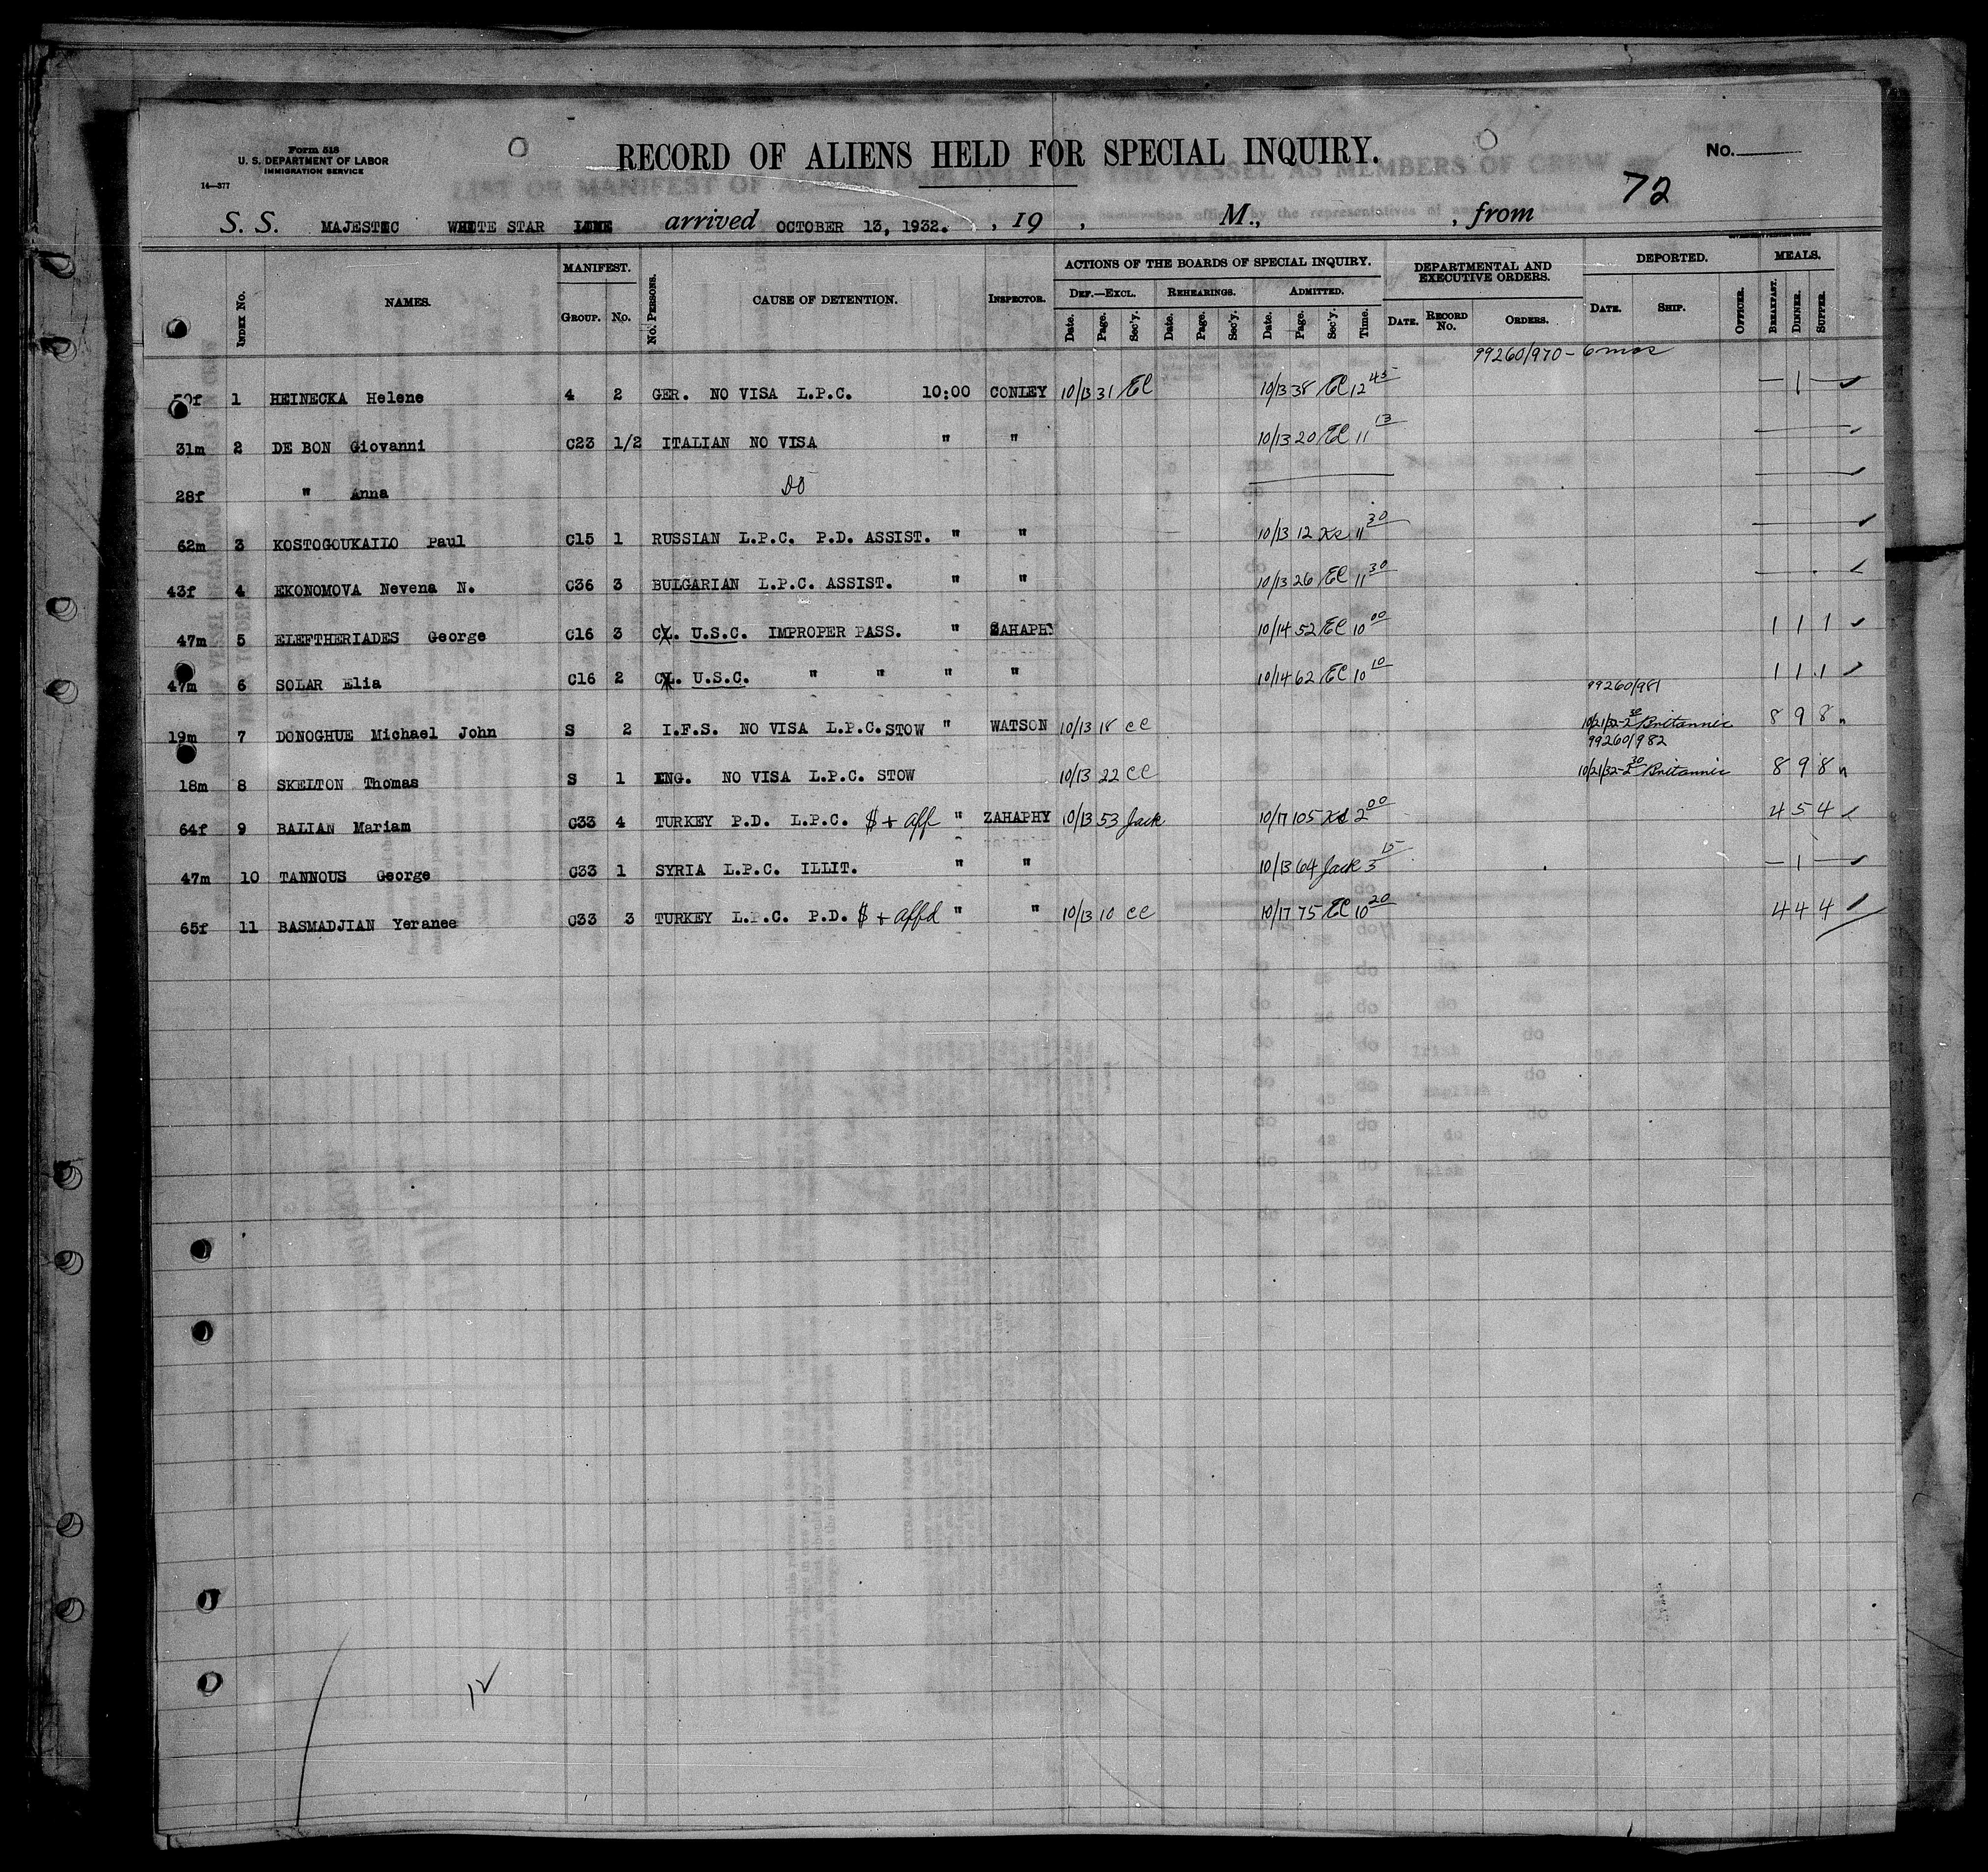 Form 518
U. S. DEPARTMENT OF LABOR
IMMIGRATION SERVICE
14—377
RECORD OF ALIENS HELD FOR SPECIAL INQUIRY.
No.
72
S. S. MAJESTIC WHITE STAR LINE arrived OCTOBER 13, 1932. , 19 , M., , from
Index No. NAMES. MANIFEST. Group. No. No. Persons. CAUSE OF DETENTION. Inspector. ACTIONS OF THE BOARDS OF SPECIAL INQUIRY. DEPARTMENTAL AND EXECUTIVE ORDERS. DEPORTED. MEALS.
Def.—Excl. Rehearings. Admitted.
Date. Page. Sec'y. Date. Page. Sec'y. Date. Page. Sec'y. Time. Date. Record No. Orders. Date. Ship. Officer. Breakfast. Dinner. Supper.
99260/970 - 6 mos
50f 1 HEINECKA Helene 4 2 GER. NO VISA L.P.C. 10:00 CONLEY 10/13 31 EC 10/13 38 EC 12 45 — 1 —
31m 2 DE BON Giovanni C23 1/2 ITALIAN NO VISA " " 10/13 20 EC 11 13
28f " Anna DO
62m 3 KOSTOGOUKAILO Paul C15 1 RUSSIAN L.P.C. P.D. ASSIST. " " 10/13 12 11 30
43f 4 EKONOMOVA Nevena N. C36 3 BULGARIAN L.P.C. ASSIST. " " 10/13 26 EC 11 30
47m 5 ELEFTHERIADES George C16 3 CL. U.S.C. IMPROPER PASS. " ZAHAPHY 10/14 52 EC 10 00 1 1 1
47m 6 SOLAR Elia C16 2 CL. U.S.C. " " " " 10/14 62 EC 10 10 1 1 1
99260/981
19m 7 DONOGHUE Michael John S 2 I.F.S. NO VISA L.P.C. STOW " WATSON 10/13 18 CC 10/21/32-2 30 Britannic 8 9 8 n
99260/982
18m 8 SKELTON Thomas S 1 ENG. NO VISA L.P.C. STOW 10/13 22 CC 10/21/32-2 30 Britannic 8 9 8 n
64f 9 BALIAN Mariam C33 4 TURKEY P.D. L.P.C. $ + aff " ZAHAPHY 10/13 53 Jack 10/17 105 2 00 4 5 4
47m 10 TANNOUS George C33 1 SYRIA L.P.C. ILLIT. " " 10/13 64 Jack 3 15 — 1 —
65f 11 BASMADJIAN Yeranee C33 3 TURKEY L.P.C. P.D. $ + affd " " 10/13 10 CC 10/17 75 EC 10 20 4 4 4